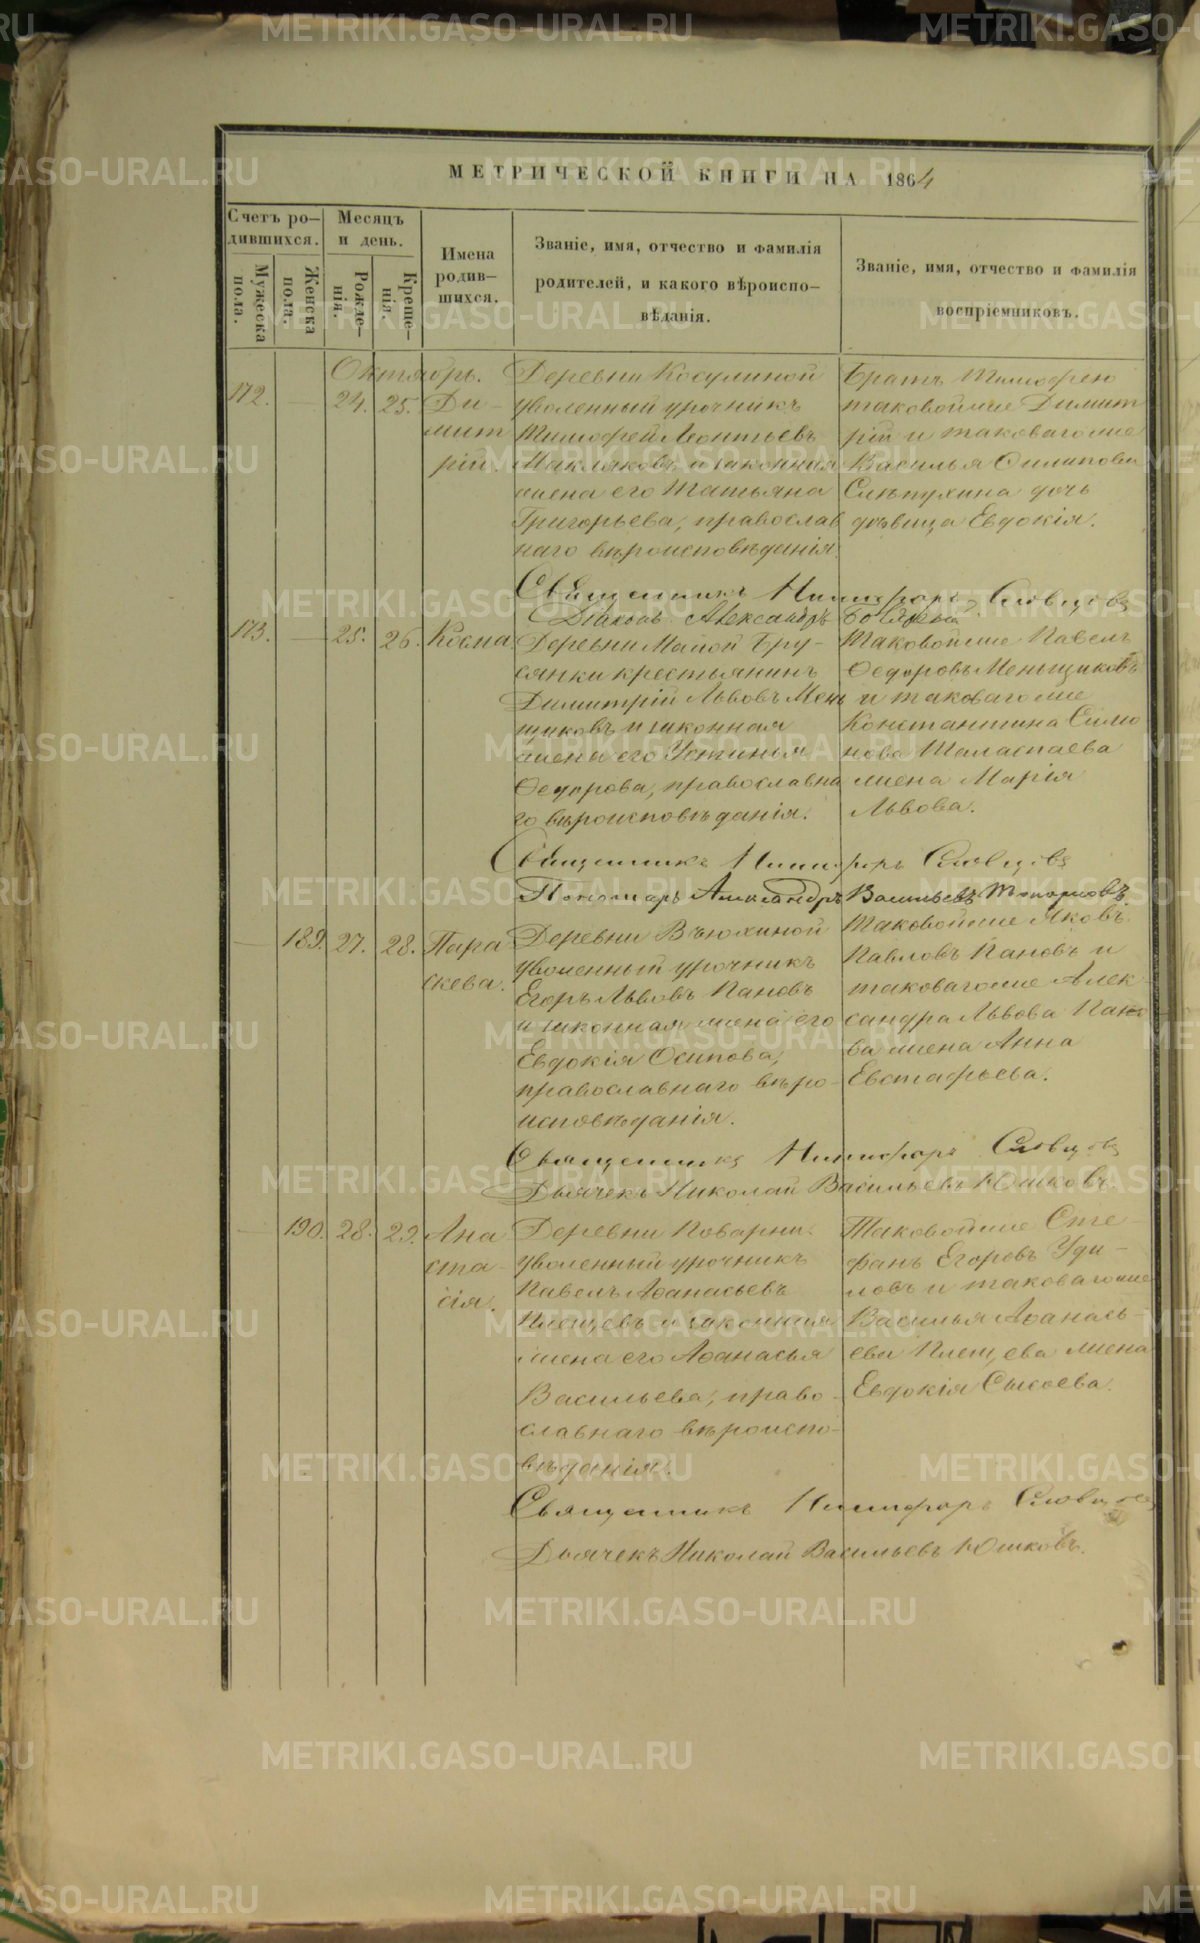 МЕТРИЧЕСКОЙ КНИГИ НА 1864
Счетъ ро-
дившихся.
Мужеска
пола.
Женска
пола.
Месяцъ
и день.
Рожде-
нія.
Креще-
нія.
Имена
родив-
шихся.
Званіе, имя, отчество и фамилія
родителей, и какого вѣроиспо-
вѣданія.
Званіе, имя, отчество и фамилія
воспріемниковъ.
Октябрь.
172. 24. 25. Ди-
мит
рій.
Деревни Косулиной
уволенный урочникъ
Тимофей Леонтьевъ
Макляковъ и законная
жена его Татьяна
Григорьева, православ
наго вѣроисповѣданія.
Братъ Тимофею
таковойже Димит
рій и таковагоже
Василья Филипова
Слѣпухина дочь
дѣвица Евдокія.
Священникъ Никифоръ Словцовъ
Діаконъ Александръ
173. 25. 26. Косма.
Деревни Малой Бру-
сянки крестьянинъ
Димитрій Львовъ Мень
щиковъ и законная
жена его Устинья
Федорова, православна
го вѣроисповѣданія.
Таковойже Павелъ
Федоровъ Меньщиковъ
и таковагоже
Константина Симо
нова Шаластаева
жена Марія
Львова.
Священникъ Никифоръ Словцовъ
Пономарь Александръ Васильевъ Топорковъ.
189. 27. 28. Пара
скева.
Деревни Вьюхиной
уволенный урочникъ
Егоръ Львовъ Пановъ
и законная жена его
Евдокія Осипова,
православнаго вѣро-
исповѣданія.
Таковойже Яковъ
Павловъ Пановъ и
таковагоже Алек-
сандра Львова Пано
ва жена Анна
Евстафьева.
Священникъ Никифоръ Словцовъ
Дьячекъ Николай Васильевъ Юшковъ.
190. 28. 29. Ана
ста-
сія.
Деревни Поварни
уволенный урочникъ
Павелъ Афанасьевъ
Плещевъ и законная
жена его Афанасья
Васильева, право-
славнаго вѣроиспо-
вѣданія.
Таковойже Сте-
фанъ Егоровъ Уди-
ловъ и таковагоже
Василья Афанась-
ева Плещева жена
Евдокія Сысоева.
Священникъ Никифоръ Словцовъ
Дьячекъ Николай Васильевъ Юшковъ.
METRIKI.GASO-URAL.RU